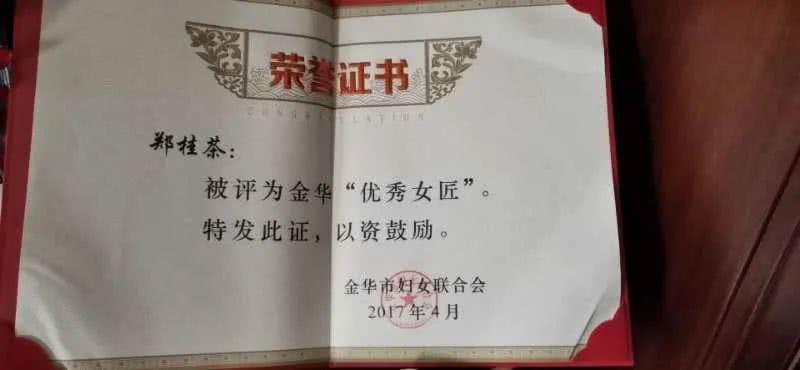 荣誉证书
CONGRATULATION
郑桂荼：
被评为金华“优秀女匠”。
特发此证，以资鼓励。
金华市妇女联合会
2017年4月